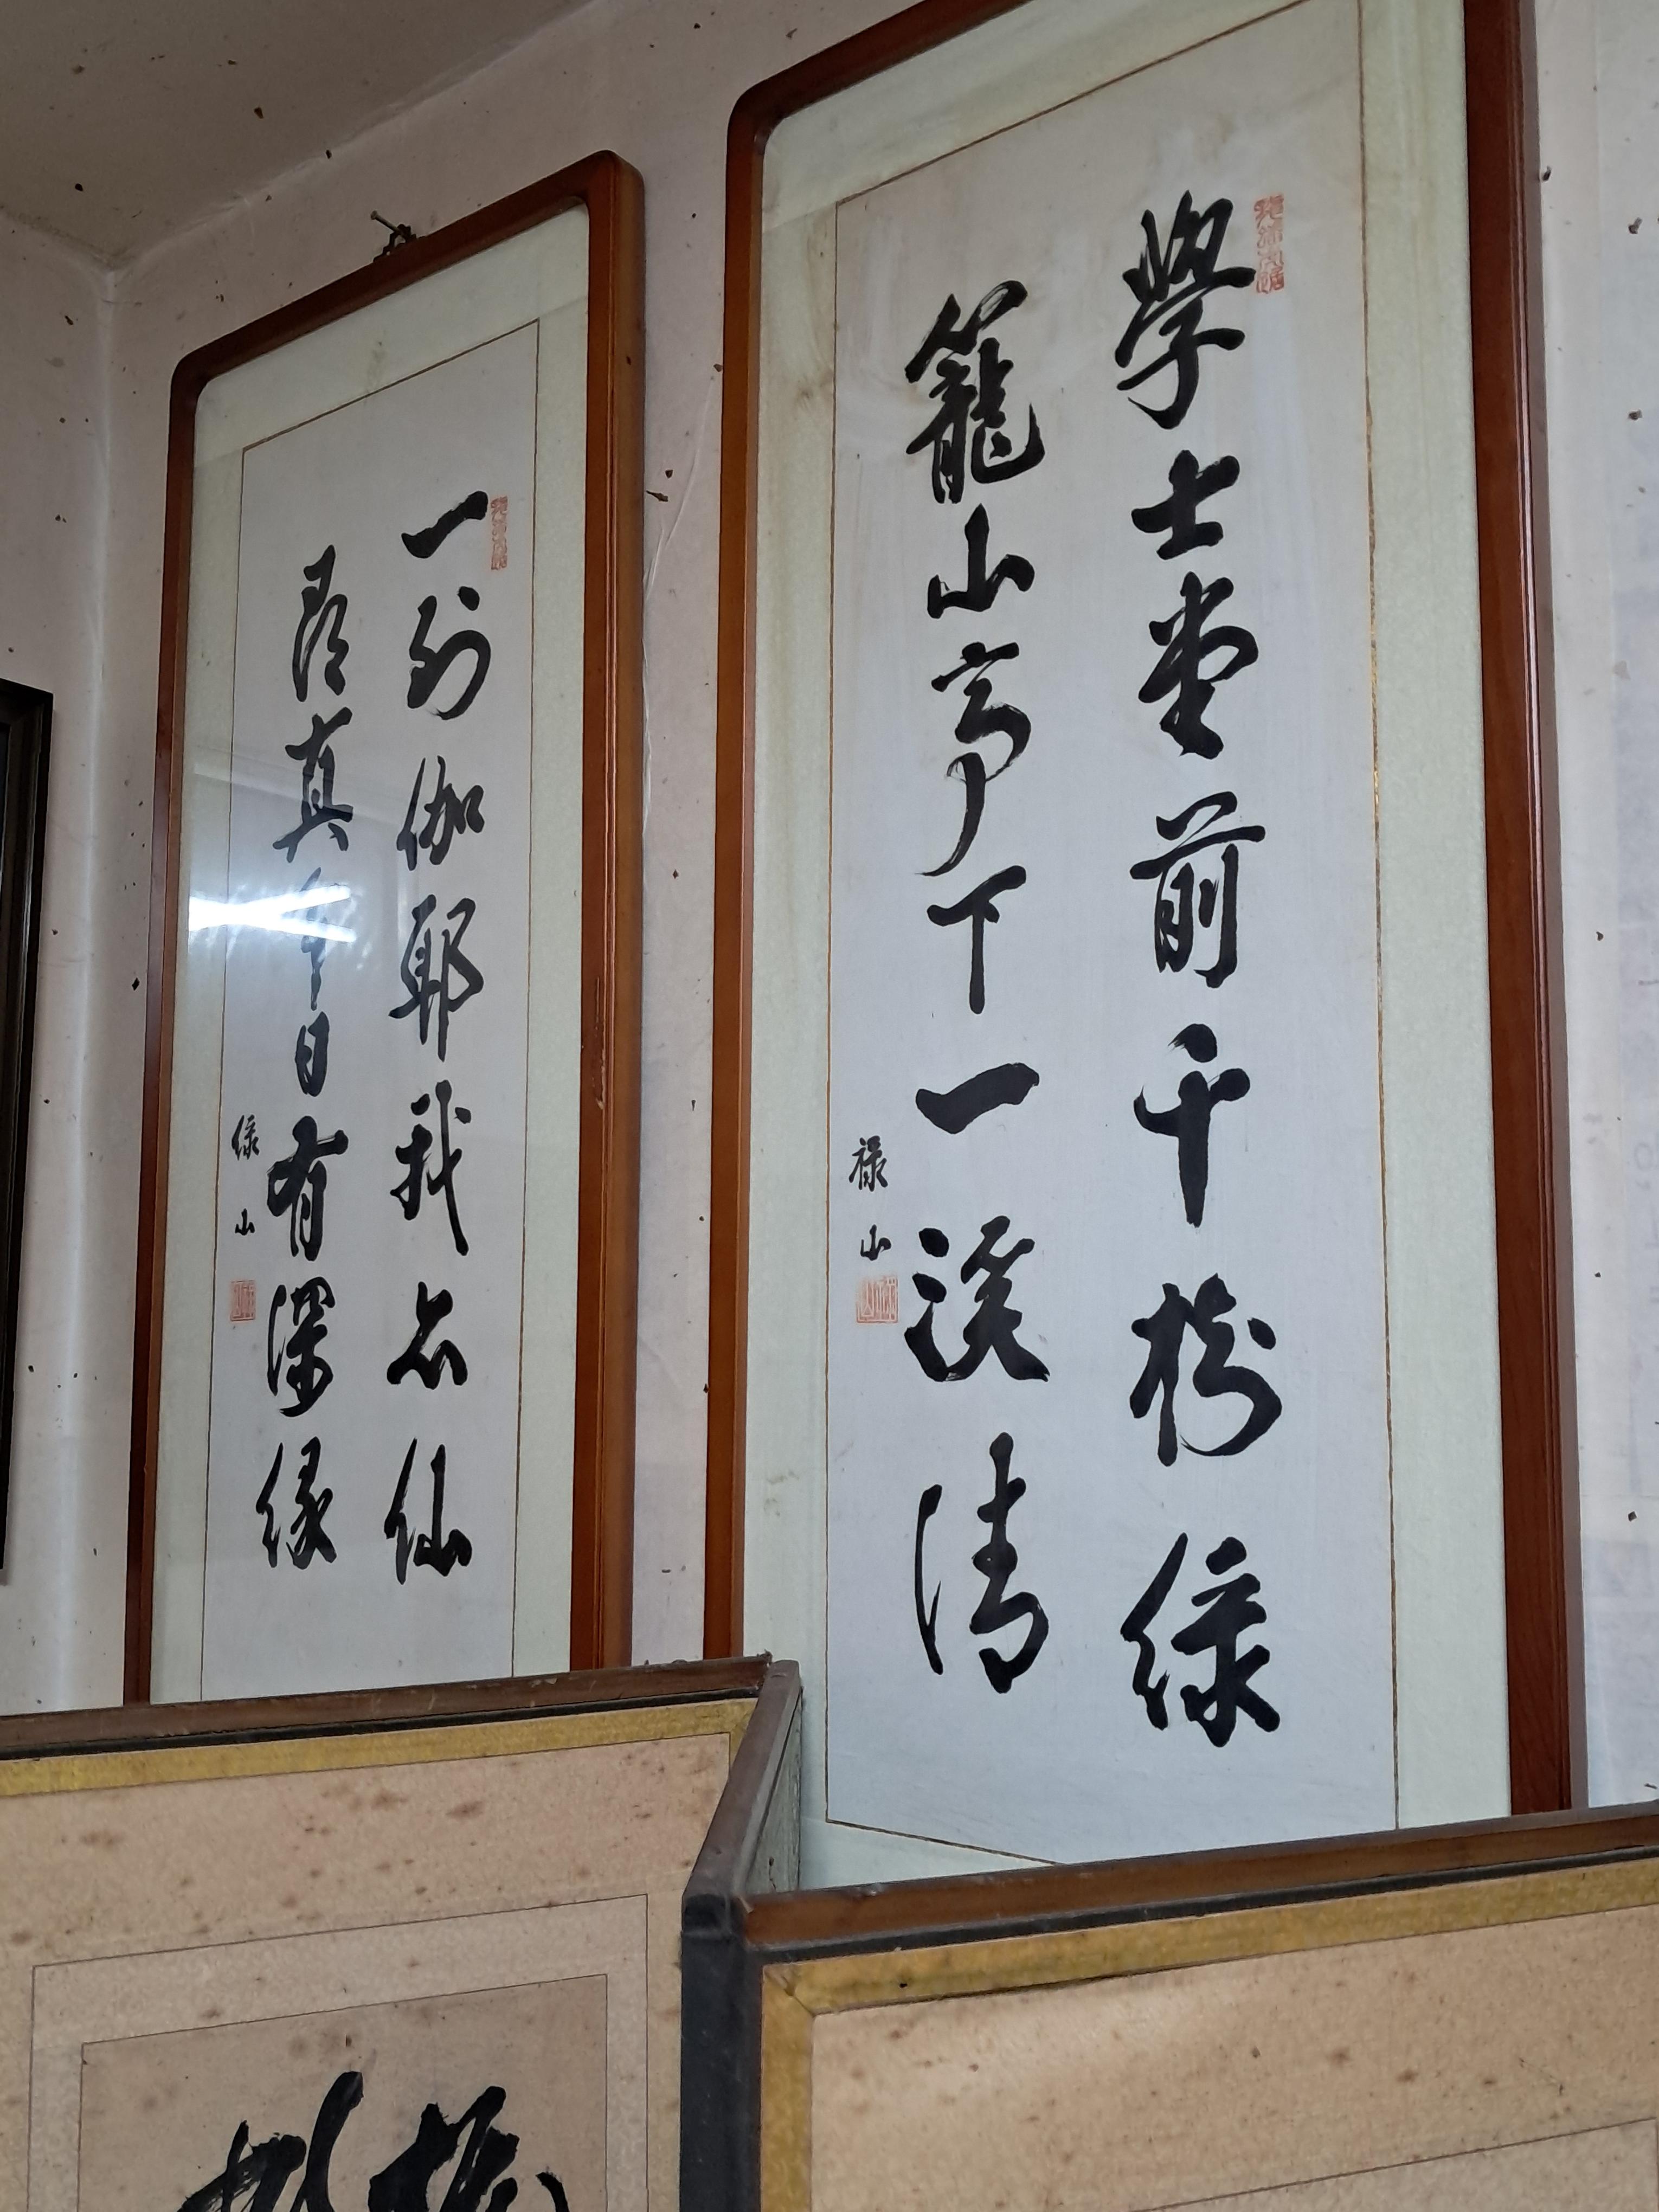 學士堂前千樹綠
籠山亭下一溪清
祿山
一到伽耶我亦仙
尋真今日有深緣
綠山